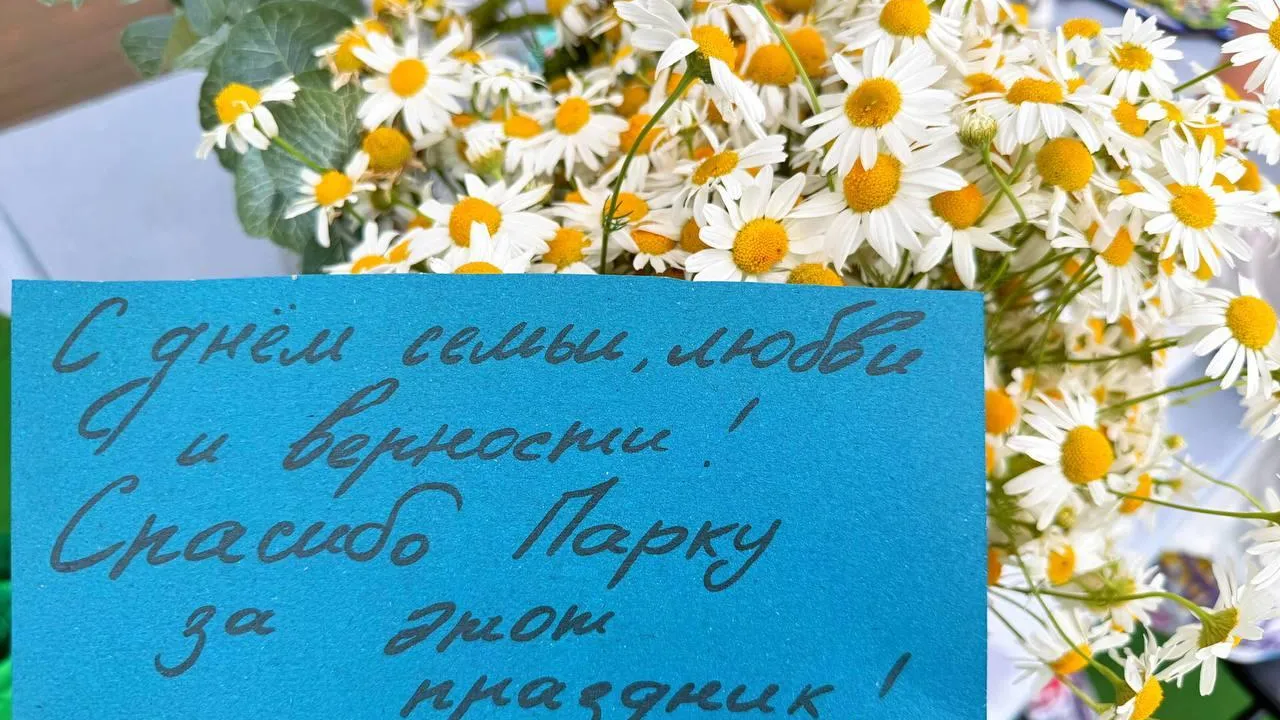 С днём семьи, любви
и верности!
Спасибо Парку
за этот
праздник!